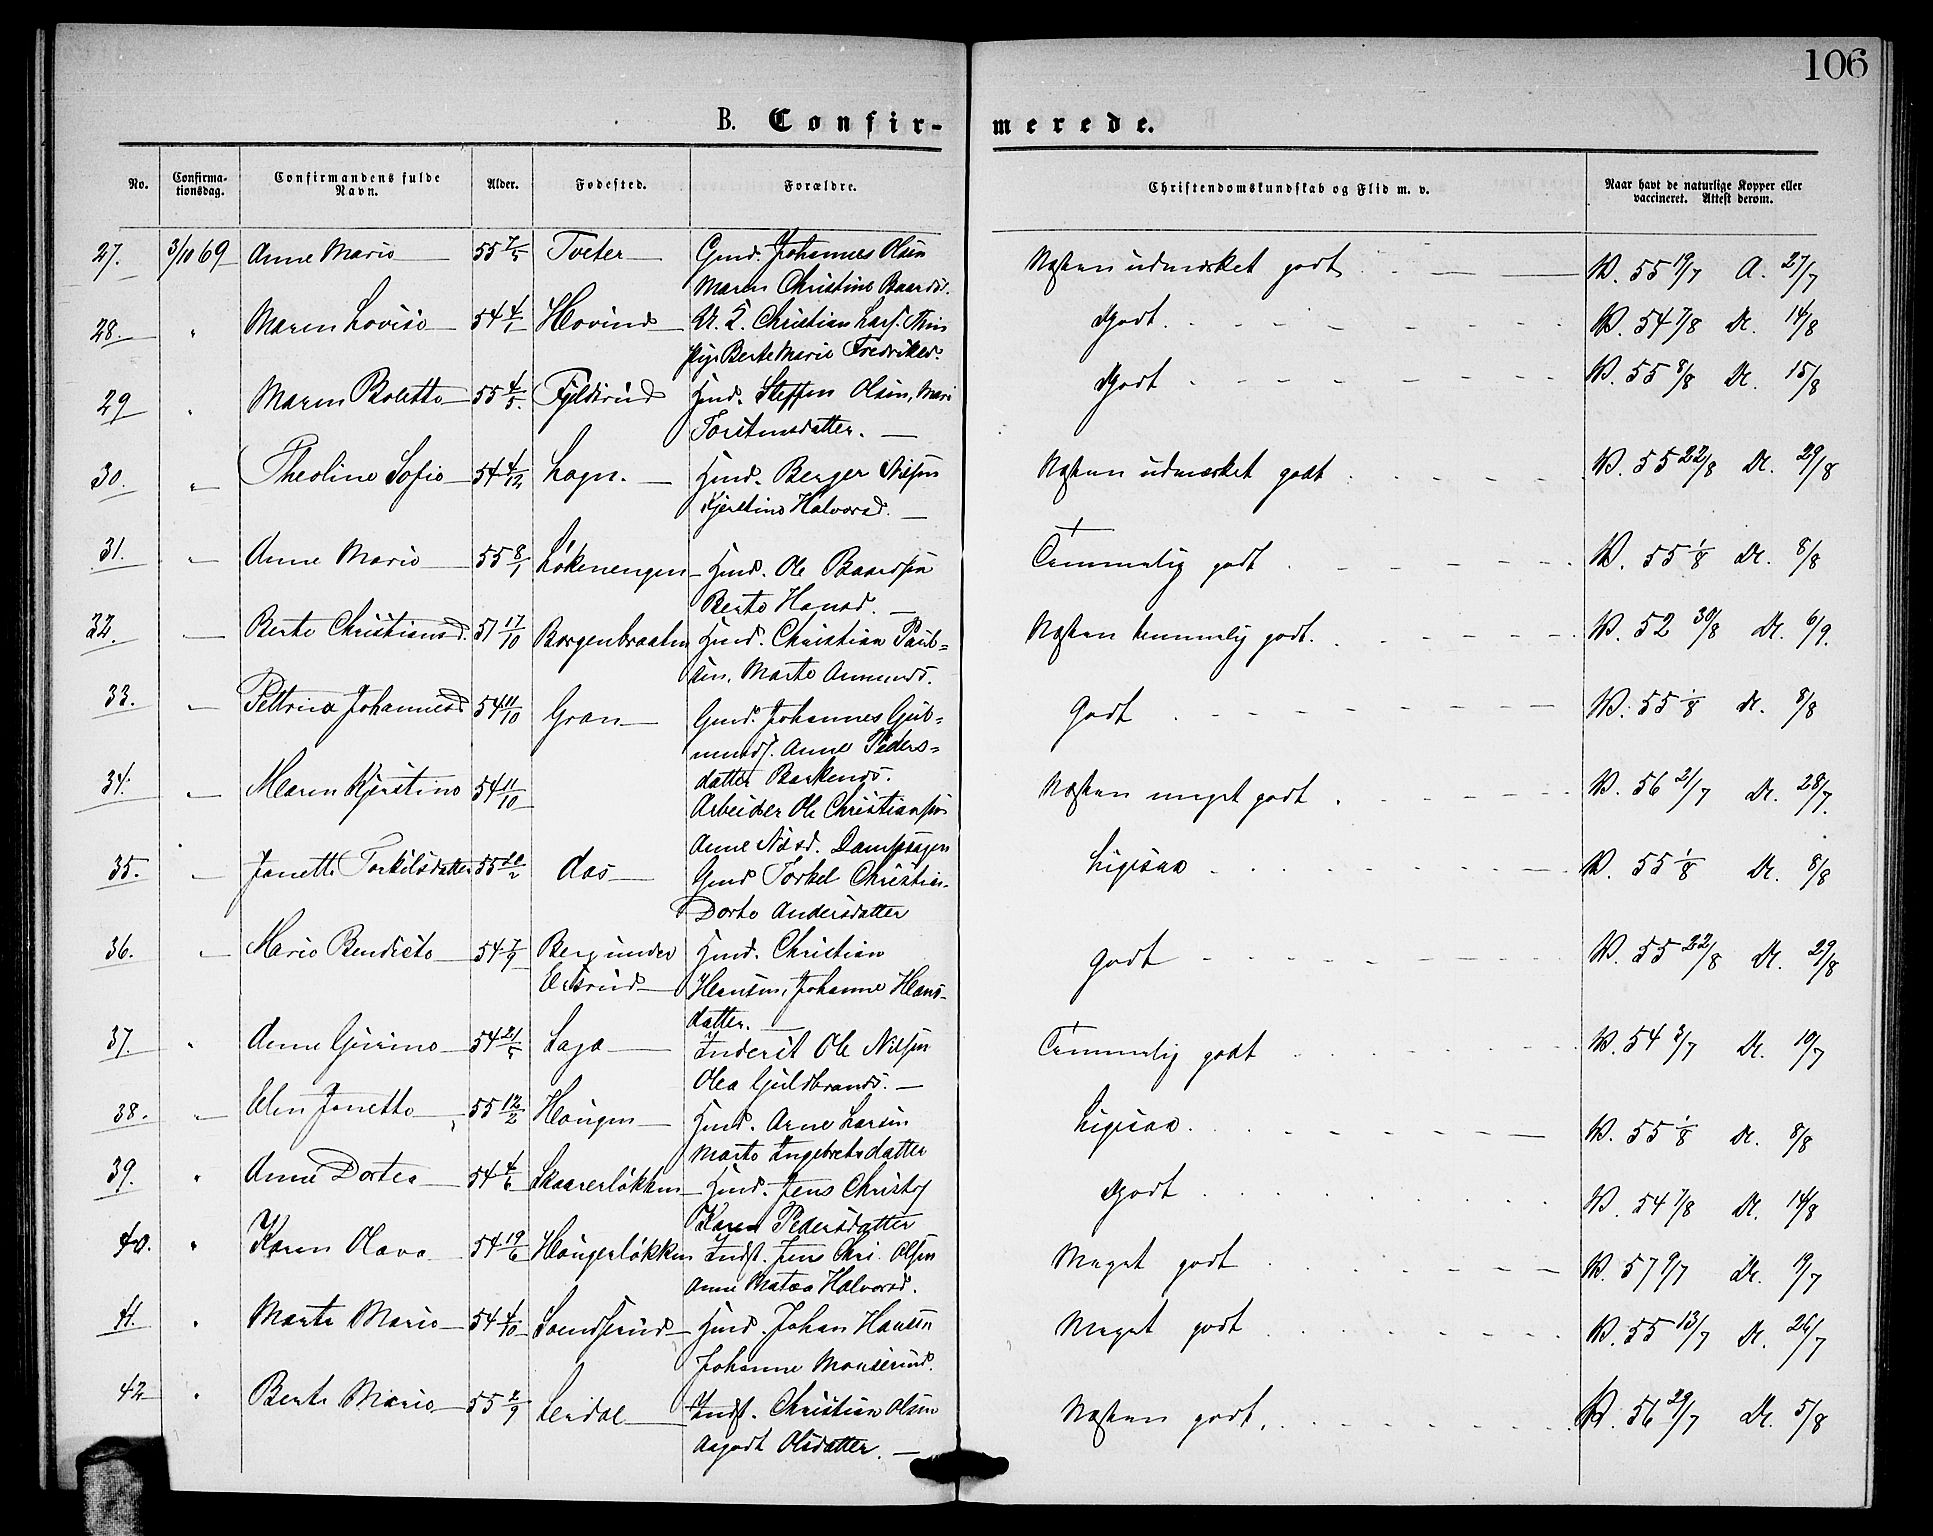 106
B. Confir-merede.
No. Confirma-tionsdag. Confirmandens fulde Navn. Alder. Fødested. Forældre. Christendomskundskab og Flid m. v. Naar havt de naturlige Kopper eller vaccineret. Attest derom.
27. 3/10 69 Anne Marie 55 7/5 Tveter Gmd. Johannes Olsen Næsten udmærket godt V. 55 19/7 A. 27/7
Maren Christine Baards.
28. " Maren Lovise 54 4/1 Hovind Christian Lars. Godt V. 54 7/8 A. 14/8
Berte Marie Fredriksd.
29 " Maren Bolette 55 4/5 Fjeldsrud Hmd. Steffen Olsen, Mari Godt V. 55 8/8 A. 15/8
Torstensdatter.
30. " Theoline Sofie 54 4/12 Logn. Hmd. Berger Nilsen Næsten udmærket godt V. 55 22/8 A. 29/8
Kjerstine Halvorsd.
31. " Anne Marie 55 8/1 Løkenengen Hmd. Ole Baardsen Temmelig godt V. 55 1/8 A. 8/8
Berte Hansd.
32. " Berte Christiansd. 51 17/10 Borgenbraaten Hmd. Christian Paul- Næsten temmelig godt. V. 52 30/8 A. 6/9.
sen, Marte Amunds.
33. " Pettrine Johannesd 54 11/10 Gran Gmd. Johannes Gud- Godt V. 55 1/8 A. 8/8
munds. Anne Peders-
datter
34. " Maren Kjerstine 54 11/10 Næsten meget godt V. 56 21/7 A. 28/7.
Arbeider Ole Christiansen
Anne Nilsd. Dampsagen
35. " Janette Torkilsdatter 55 20/2 Aas Gmd Torkel Christian- Ligesaa V. 55 1/8 A. 8/8
Dorte Andersdatter
36. " Marie Bendicte 54 7/9 Berg under Hmd. Christian Godt V. 55 22/8 A. 29/8
Hansen, Johanne Hans-
datter.
37. " Anne Gurine 54 21/5 Laga Inderst Ole Nilsen Temmelig godt V. 54 3/7 A. 10/7
Olea Guldbrands.
38. " Elen Janette 55 12/2 Haugen Hmd. Arne Larsen Ligesaa. V. 55 1/8 A. 8/8
Marte Ingebretsdatter
39. " Anne Dortea 54 4/6 Skaarerløkken Hmd. Jens Christof Godt V. 54 7/8 A. 14/8
Karen Pedersdatter
40. " Karen Olava 54 19/6 Haugerløkken Indst. Jens Chri. Olsen Meget godt V. 57 9/7 A. 19/7
Anne Matea Halvorsd.
41. " Marte Marie 54 4/10 Hmd. Johan Hansen Meget godt V. 55 13/7 A. 26/7
Johanne
42 " Berte Marie 55 2/9 Leirdal Indst. Christian Olsen Næsten godt. V. 56 29/7 A. 5/8
Aagodt Olsdatter.